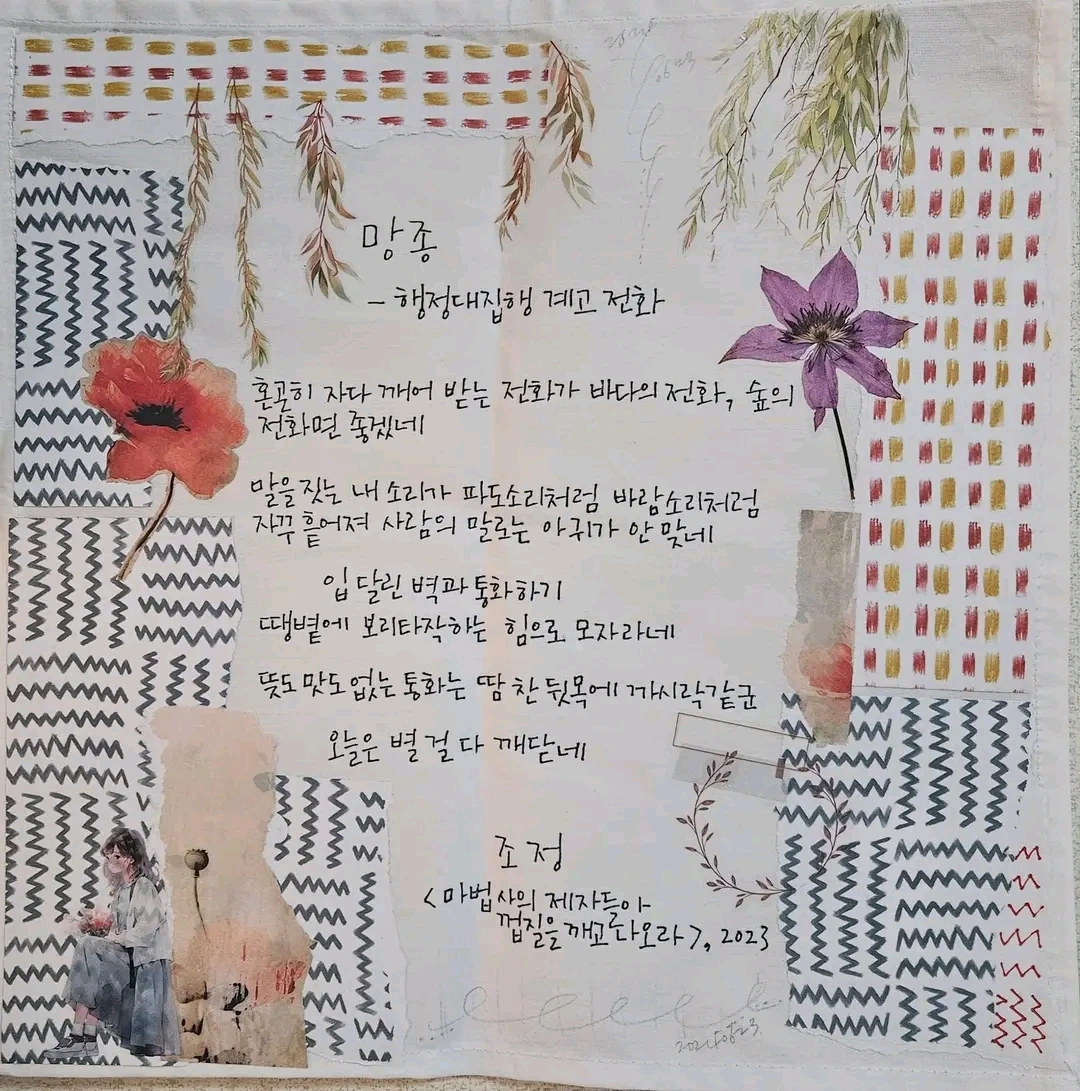 망종
- 행정대집행 계고 전화
혼곤히 자다 깨어 받는 전화가 바다의 전화, 숲의
전화면 좋겠네
말을 짓는 내 소리가 파도소리처럼 바람소리처럼
자꾸 흩어져 사람의 말로는 아귀가 안 맞네
입 달린 벽과 통화하기
땡볕에 보리타작하는 힘으로 모자라네
뜻도 맛도 없는 통화는 땀 찬 뒷목에 까시락 같군
오늘은 별 걸 다 깨닫네
조정
<마법사의 제자들아
껍질을 깨고 나오라>, 2023